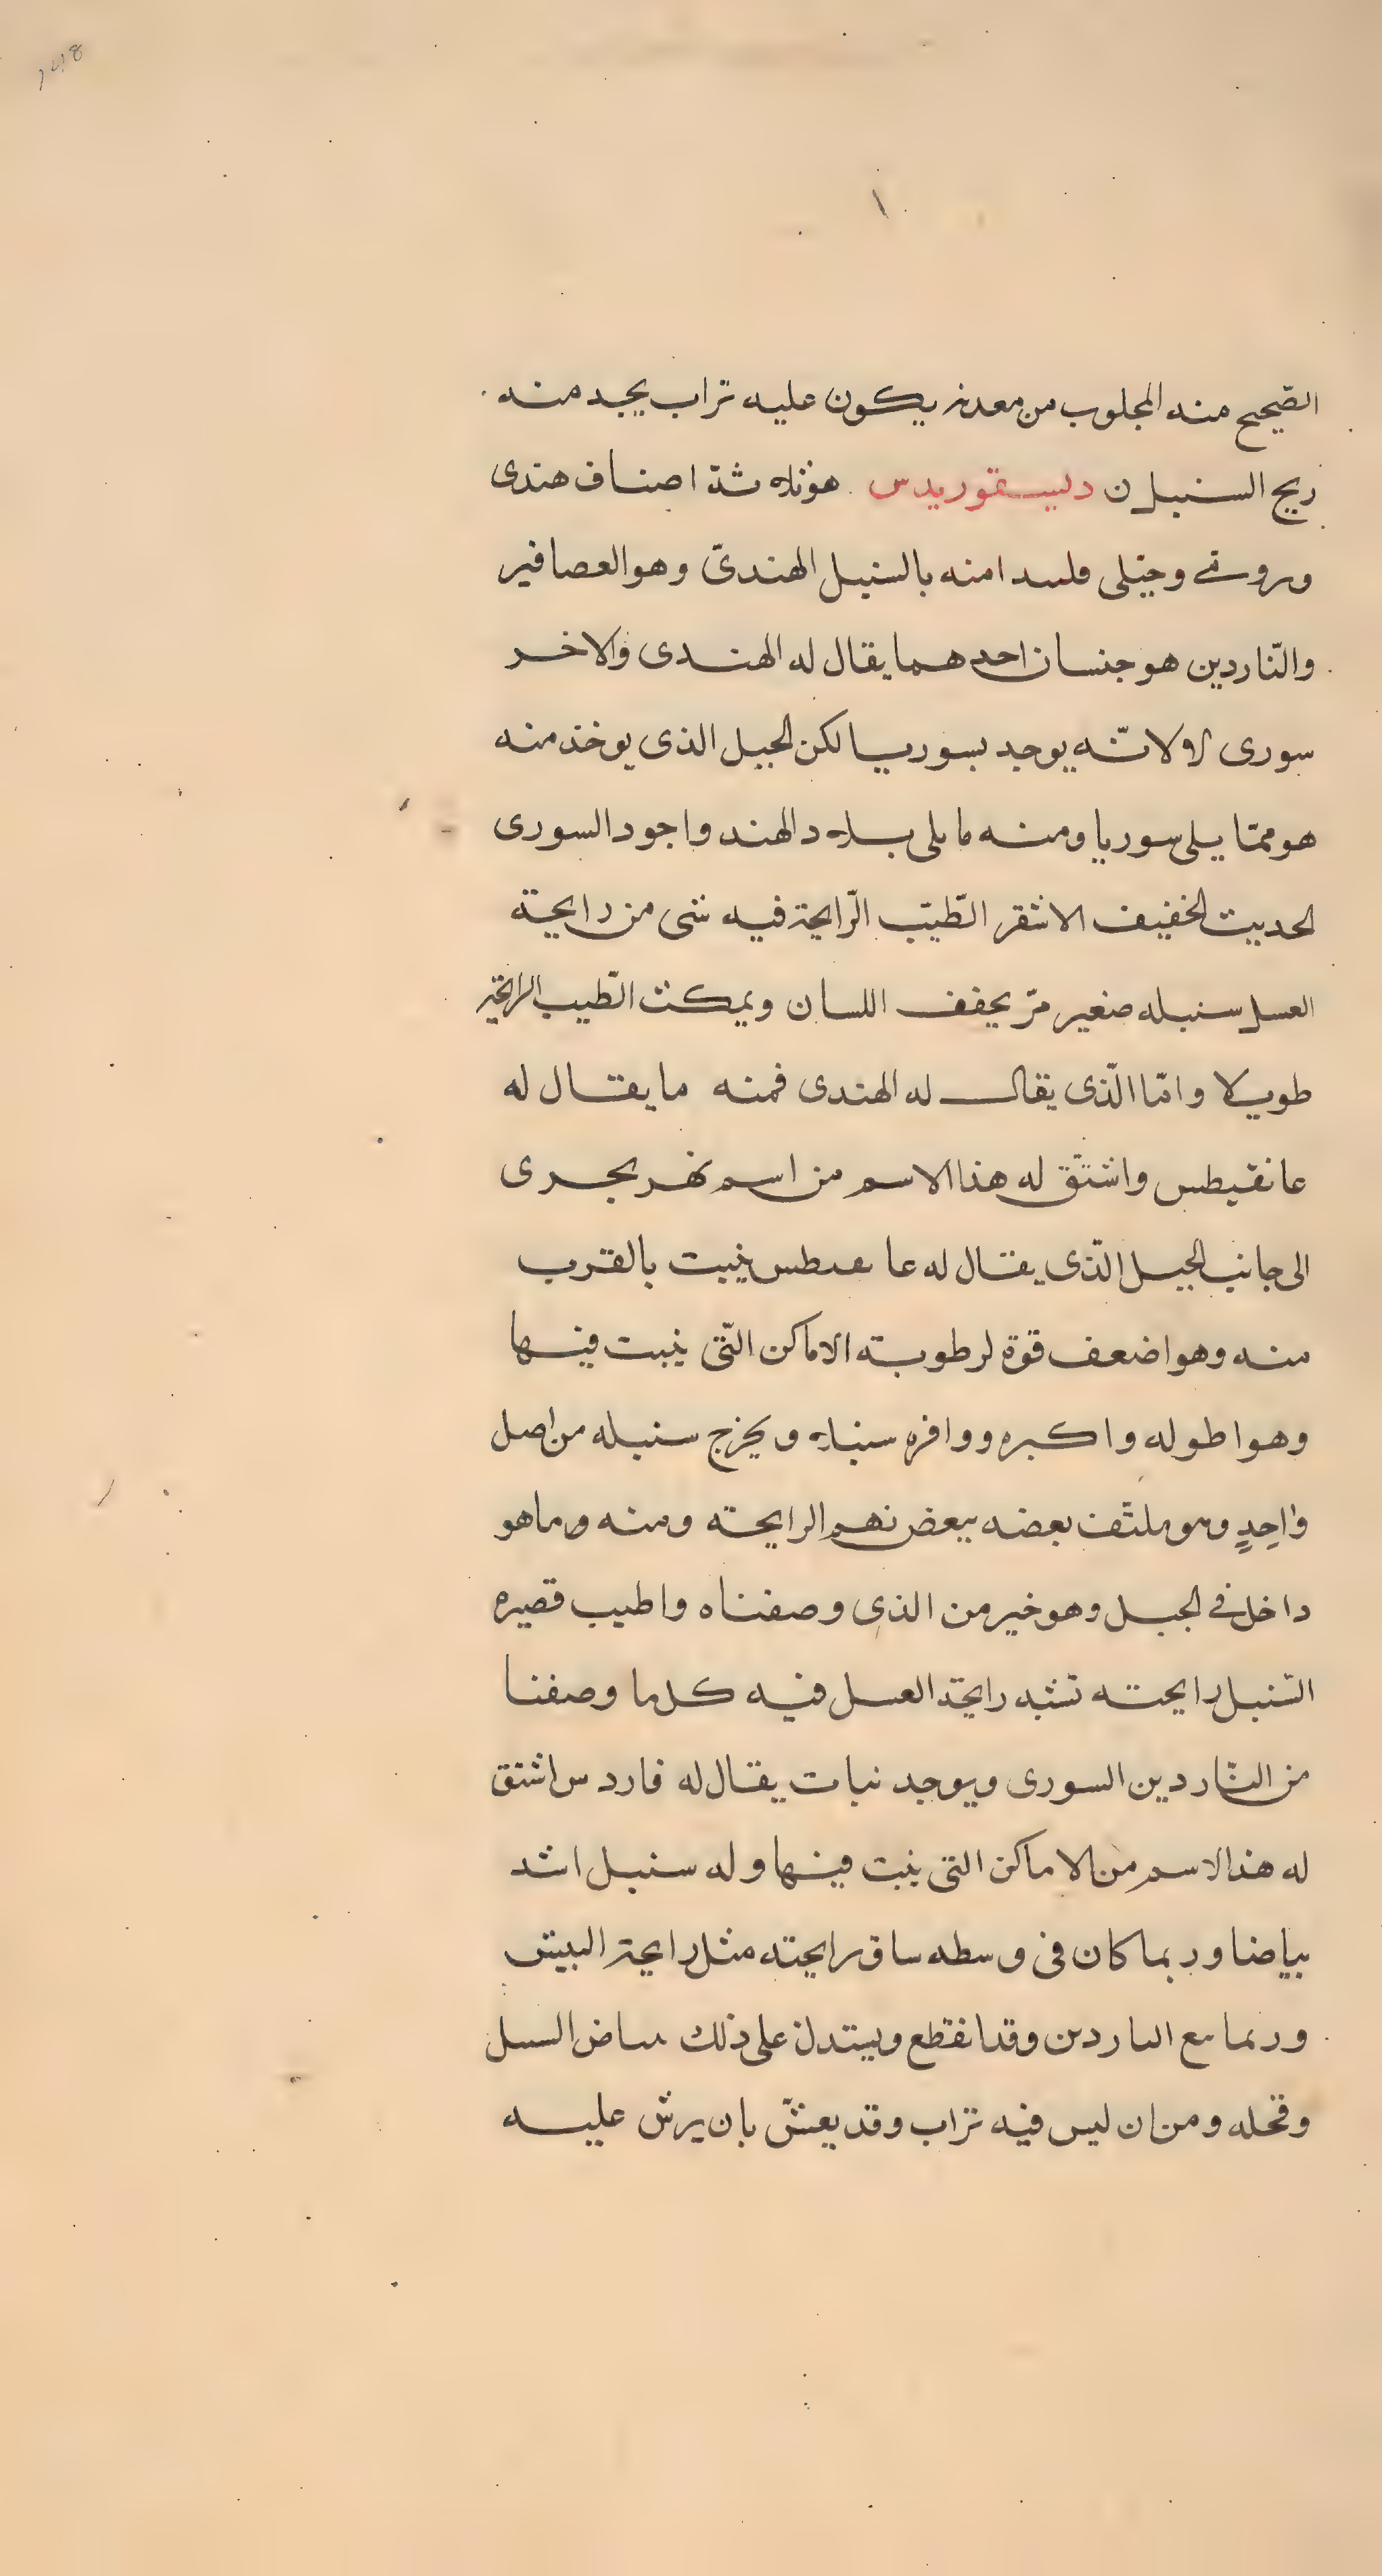 148
١
الصّحيح منه المجلوب من معدنه يكون عليه تراب يجد منه
ريح السنبل ن دليسقوريدس هو ثلاثة اصناف هندى
ورومى وجبلى فلبدا منه بالسنبل الهندىّ وهو العصافير
والنّاردين هو جنسان احدهما يقال له الهندى والاخر
سورى لا لانّه يوجد بسوريا لكن الجبل الذى يوخذ منه
هو ممّا يلى سوريا ومنه ما يلى بلاد الهند واجود السورى
الحديث الخفيف الاشقر الطّيّب الرّايحة فيه شى من رايحة
العسل سنبله صغير مرّ يجفف اللسان ويمكث الطّيب الرايحة
طويلا وامّا الّذى يقال له الهندى فمنه ما يقال له
عانقيطس واشتّق له هذا الاسم من اسم نهر يجرى
الى جانب الجبل الّذى يقال له عا ىقىطس ينبت بالقرب
منه وهو اضعف قوة لرطوبة الاماكن الّتى ينبت فيها
وهو اطوله واكبره ووافره سنبله ويخرج سنبله من اصل
واحِدٍ وهو ملتّف بعضه ببعض نهم الرايحته ومنه وما هو
داخل فى الجبل وهو خير من الذى وصفناه واطيب قصيره
السّنبل رايحته تشبه رايحة العسل فيه كل ما وصفنا
من النّاردين السورى ويوجد نبات يقال له فارد س اشتق
له هذا الاسم من الاماكن التى ينبت فيها وله سنبل اشد
بياضا وربما كان فى وسطه ساق رايحته مثل رايحة البيش
وربما بيع الناردين وقد انقطع ويستدل على ذلك بياض السنبل
وقحله ومن ان ليس فيه تراب وقد يعشّ بان يرش عليه